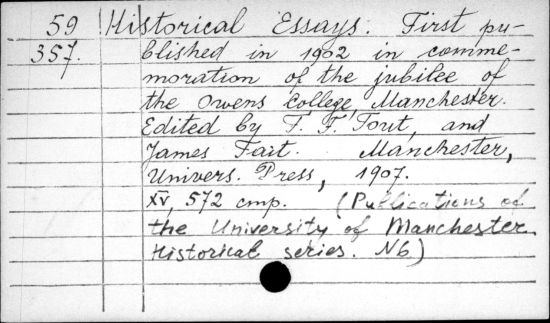 59 Historical Essays. First pu-
357. blished in 1902 in comme-
moration of the jubilee of
the Owens College, Manchester.
Edited by T. F. Tout, and
James Tait. Manchester,
Univers. Press, 1907.
XV, 572 cmp. (Publications of
the University of Manchester
Historical series. N6)